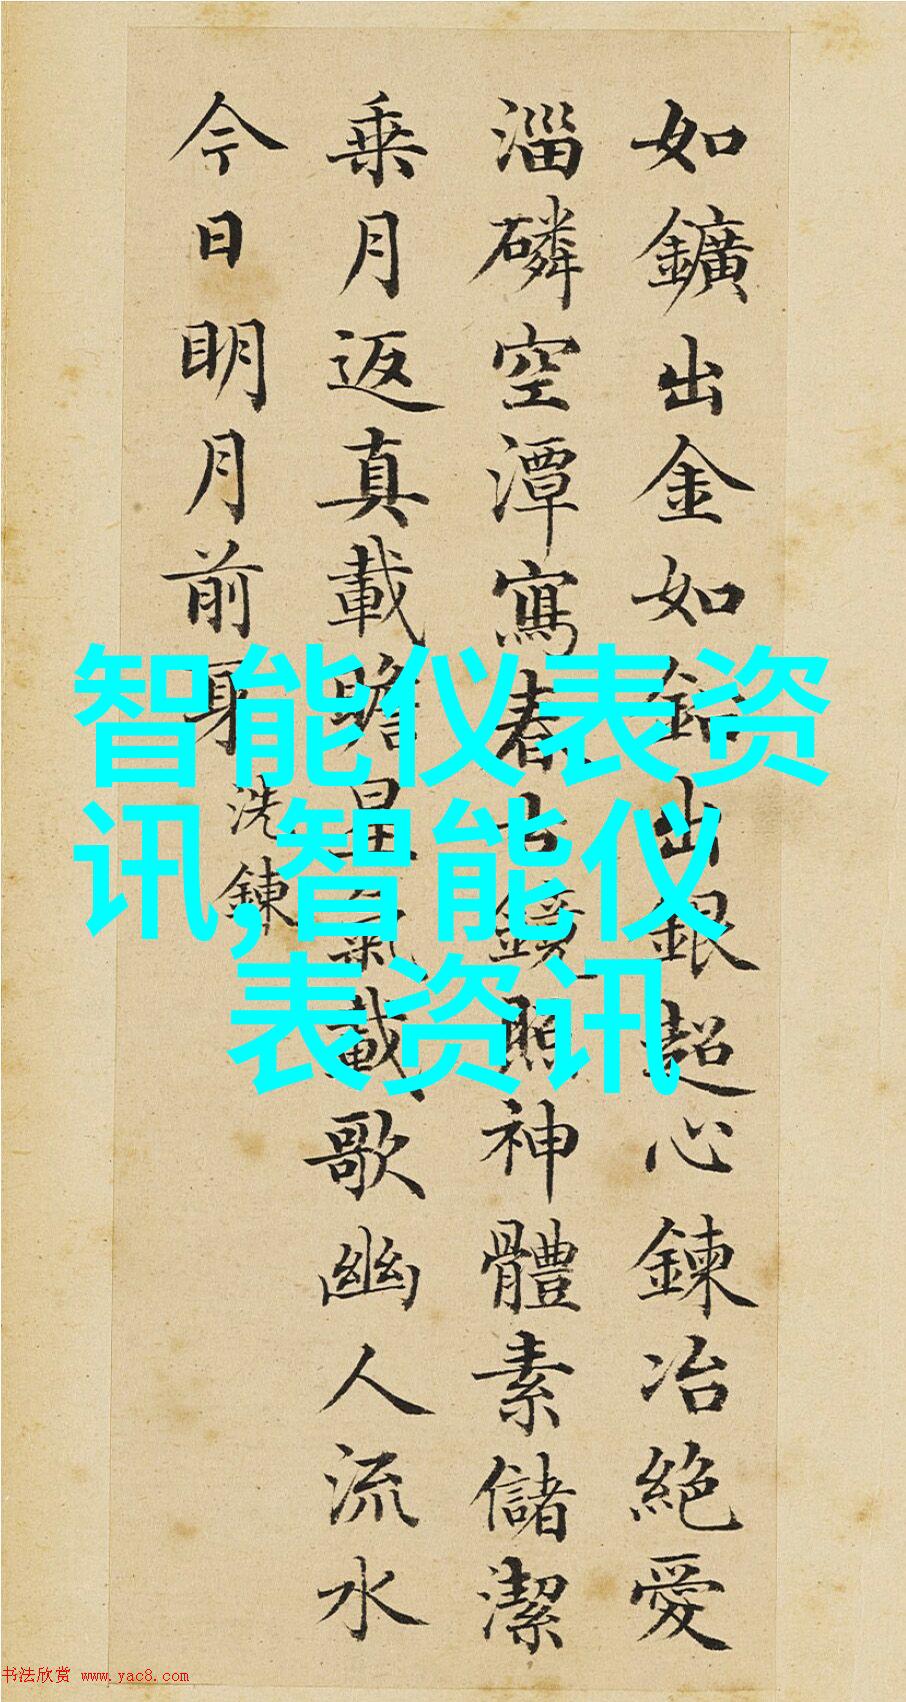 如鑛出金如鉛出銀超心鍊冶絶愛
淄磷空潭寫春古鏡照神體素儲潔
乗月返真載瞻星氣載歌幽人流水
今日明月前身
洗鍊
智能仪表资
讯,智能仪
表资讯
书法欣赏 www.yac8.com